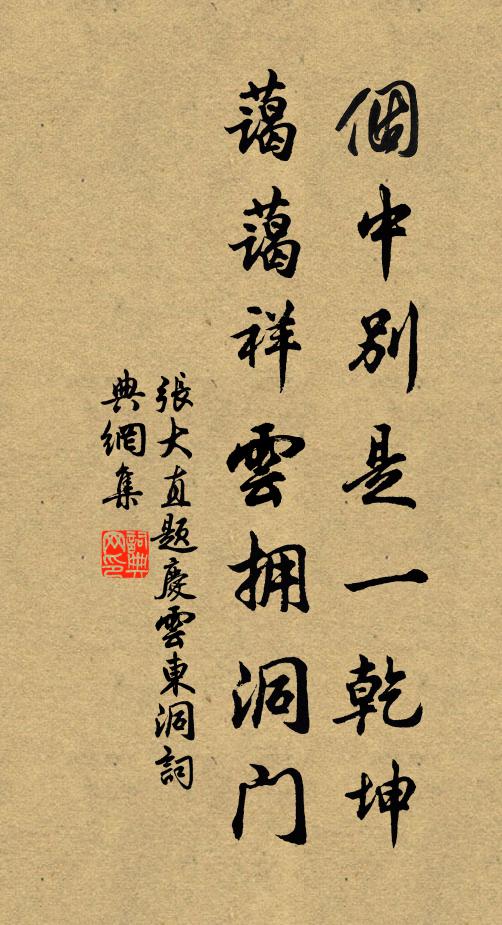 個中別是一乾坤
藹藹祥雲拥洞门
張大直题慶雲東洞詞
典網集
詞典网印